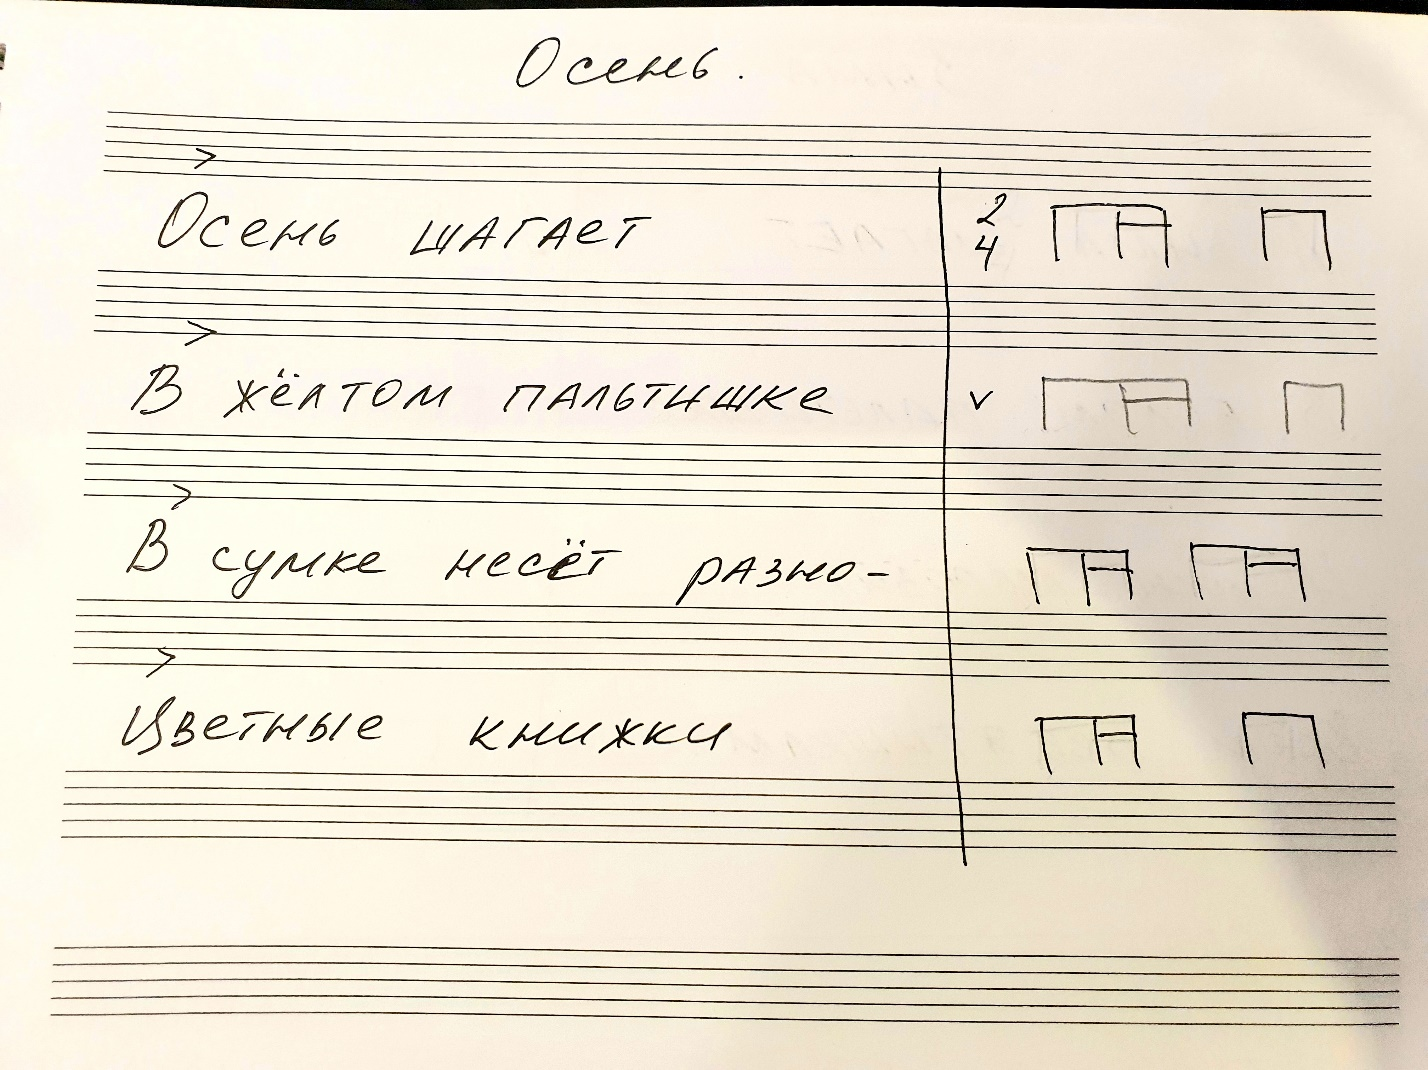 Осень.
Осень шагает 2 4
В жёлтом пальтишке v
В сумке несёт разно-
Цветные книжки